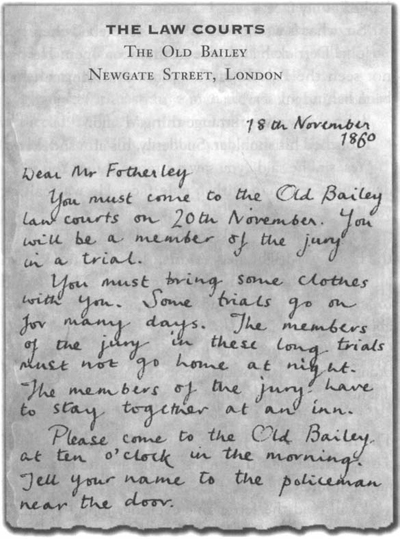 THE LAW COURTS
THE OLD BAILEY
NEWGATE STREET, LONDON
18th November
1860
Dear Mr Fotherley
You must come to the Old Bailey
law courts on 20th November. You
will be a member of the jury
in a trial.
You must bring some clothes
with you. Some trials go on
for many days. The members
of the jury in these long trials
must not go home at night.
The members of the jury have
to stay together at an inn.
Please come to the Old Bailey
at ten o'clock in the morning.
Tell your name to the policeman
near the door.